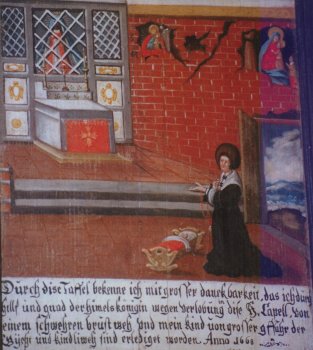 Durch dise Taffel bekenne ich mit grosser danckbarkeit, das ich durch
hilff und gnad der himels Königin wegen verlobung in dise H. Capell, von
einem schwehren brust weh, und mein kind von grosser gffahr der
und kindliweh sind erlediget worden. Anno 1668